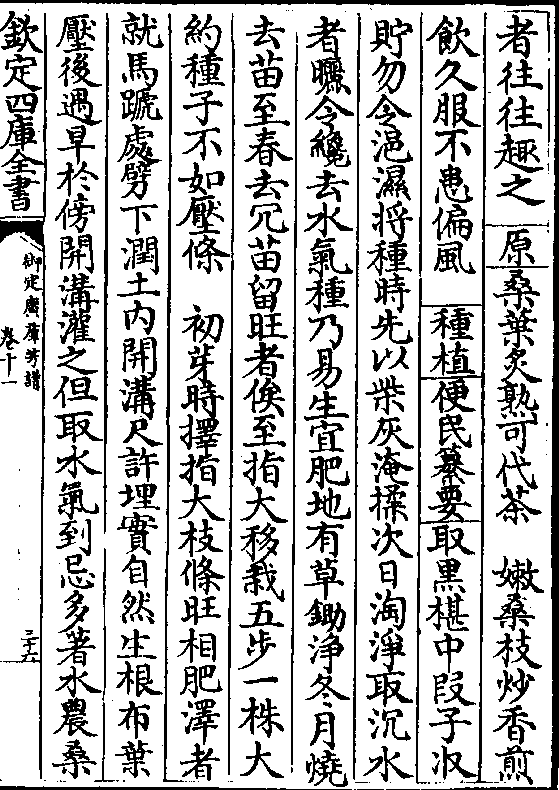 者往往趣之　原桑葉炙熟可代茶　嫩桑枝炒香煎
飲久服不患偏風　種植便民纂要取黑椹中段子収
貯勿令浥濕將種時先以柴灰淹揉次日淘淨取沉水
者曬令纔去水氣種乃易生宜肥地有草鋤淨冬月燒
去苗至春去冗苗留旺者俟至指大移栽五步一株大
約種子不如壓條　初芽時擇指大枝條旺相肥澤者
就馬蹏處劈下潤土內開溝尺許埋實自然生根布葉
壓後遇旱於傍開溝灌之但取水氣到忌多著水農桑
欽定四庫全書
御定廣羣芳譜
卷十一
三十六